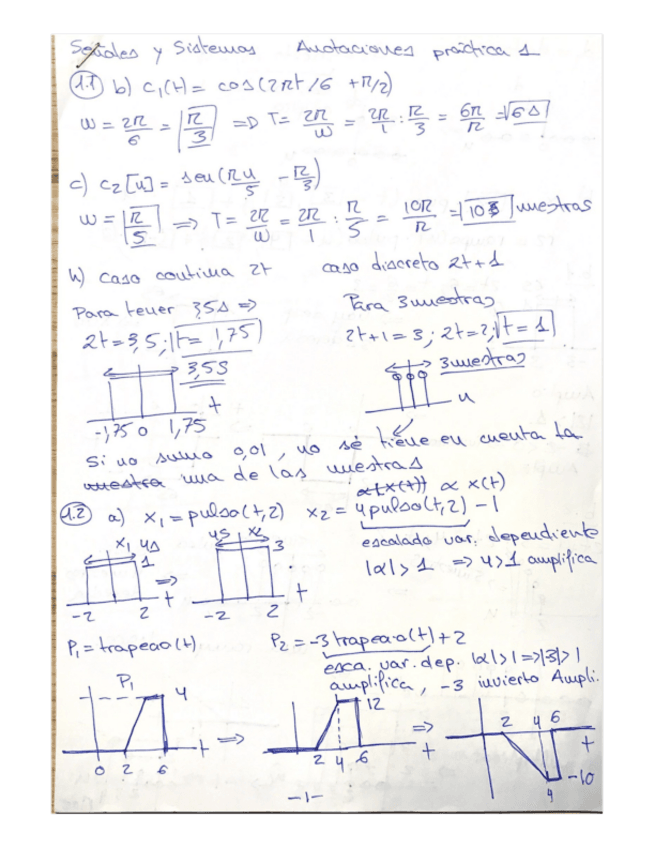 Señales y Sistemas Anotaciones práctica 1
1.1 b) C₁(t) = cos(2πt/6 + π/2)
ω = 2π/6 = π/3 => T = 2π/ω = 2π/1 : π/3 = 6π/π = 6s
c) C₂[n] = sen(πn/5 - π/3)
ω = π/5 => T = 2π/ω = 2π/1 : π/5 = 10π/π = 10 muestras
h) caso continua 2t caso discreto 2t+1
Para tener 3,5s => Para 3 muestras
2t = 3,5; t = 1,75 2t+1 = 3; 2t = 2; t = 1
3,5s 3 muestras
-1,75 0 1,75 t n
Si no sumo 0,01, no se tiene en cuenta la
muestra una de las muestras
α[x(t)] α x(t)
1.2 a) x₁ = pulso(t,2) x₂ = 4pulso(t,2) - 1
escalado var. dependiente
|α| > 1 => 4 > 1 amplifica
x₁ 4s 1 => 4s x₂ 3
-2 2 t -2 2 t
P₁ = trapecio(t) P₂ = -3trapecio(t) + 2
esca. var. dep. |α| > 1 => |-3| > 1
amplifica, -3 invierto Ampli.
P₁ 4 => 12 => 2 4 6
0 2 6 t 2 4 6 t t
-10
4
-1-